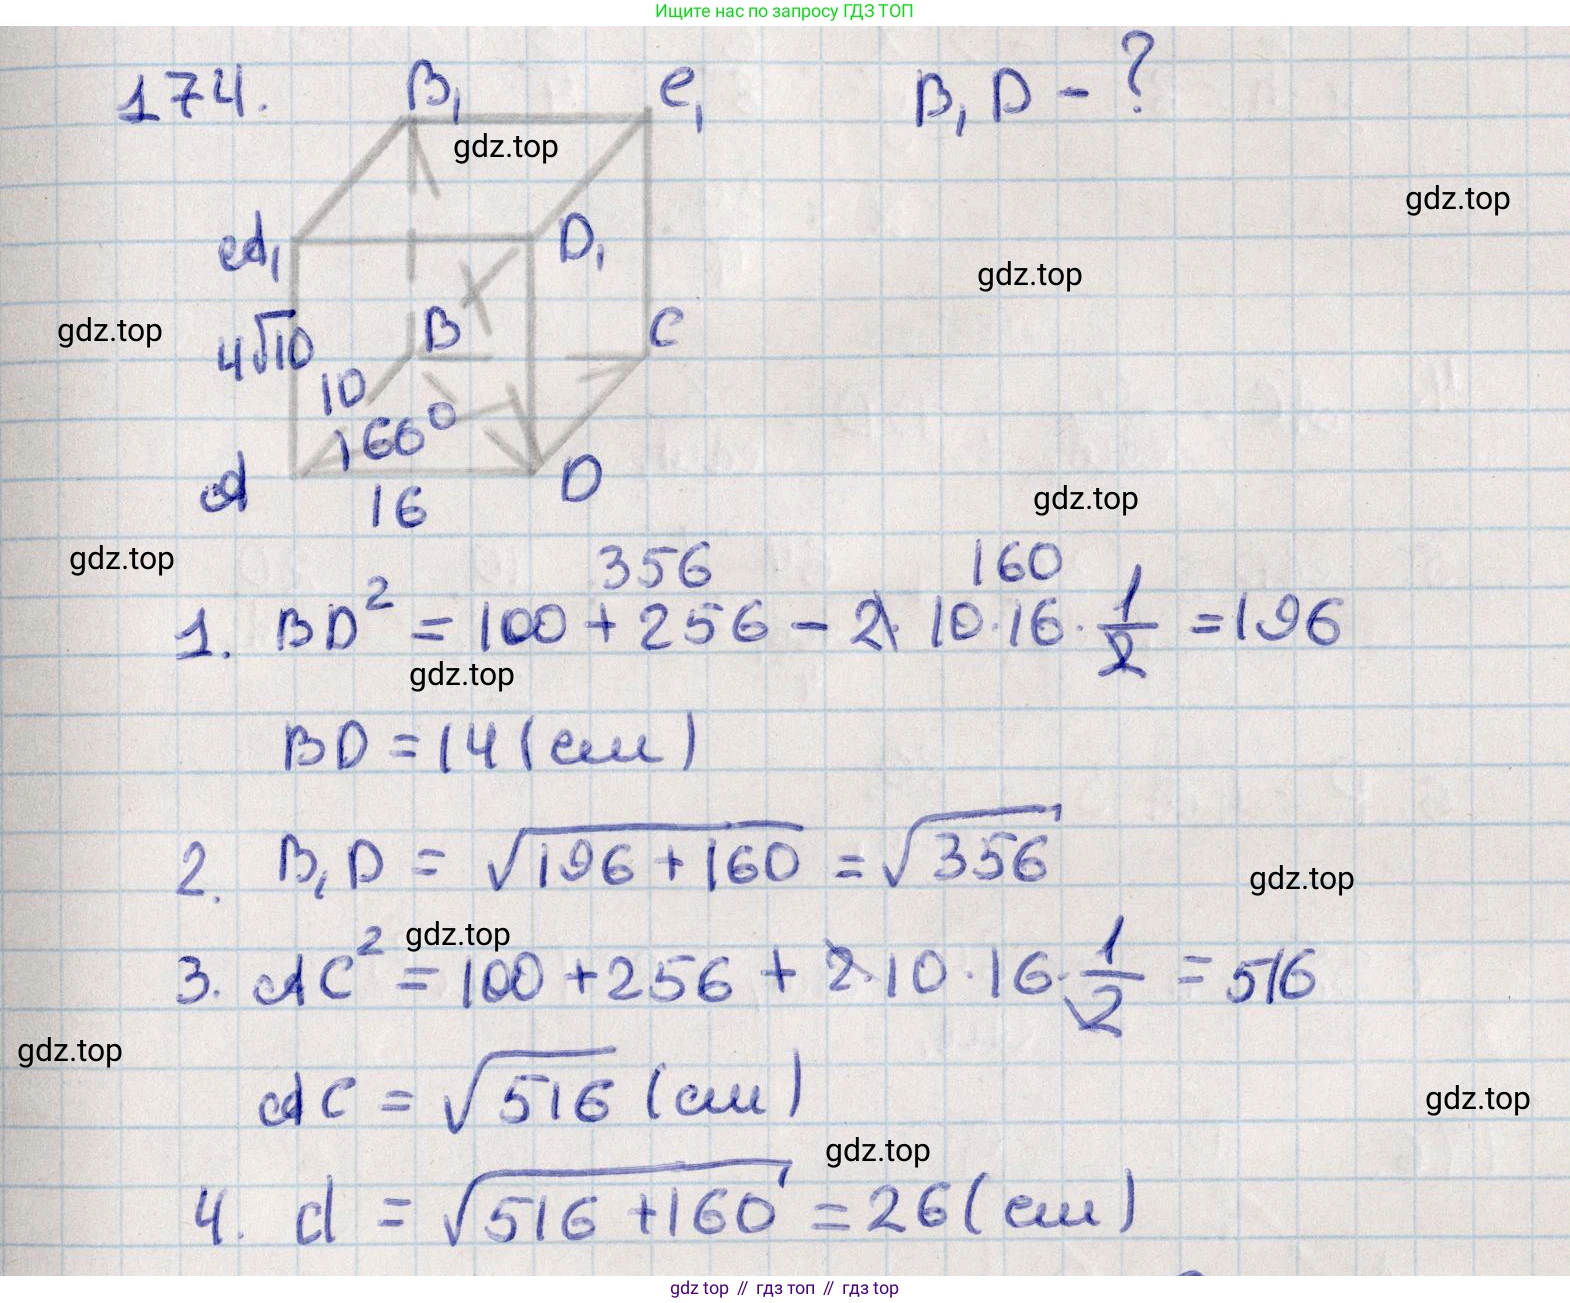 Ищите нас по запросу ГДЗ ТОП
174. B₁ C₁ B₁D - ?
gdz.top
gdz.top
A₁ D₁
gdz.top
gdz.top
4√10 B C
10
160°
A 16 D
gdz.top
gdz.top
356 160
1. BD² = 100 + 256 - 2 · 10 · 16 · 1/2 = 196
gdz.top
BD = 14 (см)
2. B₁D = √196 + 160 = √356
gdz.top
gdz.top
3. AC² = 100 + 256 + 2 · 10 · 16 · 1/2 = 516
gdz.top
AC = √516 (см)
gdz.top
gdz.top
4. d = √516 + 160 = 26 (см)
gdz top // гдз топ // гдз top